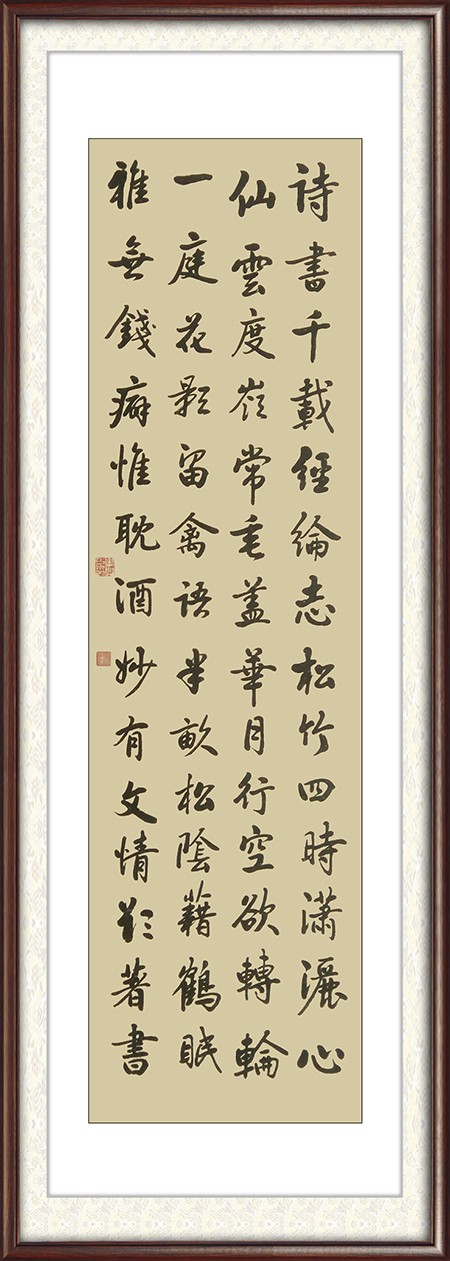 詩書千載經綸志松竹四時瀟灑心
仙雲度嶺常垂蓋華月行空欲轉輪
一庭花影留禽語半畝松陰藉鶴眠
雅無錢癖惟耽酒妙有文情著書